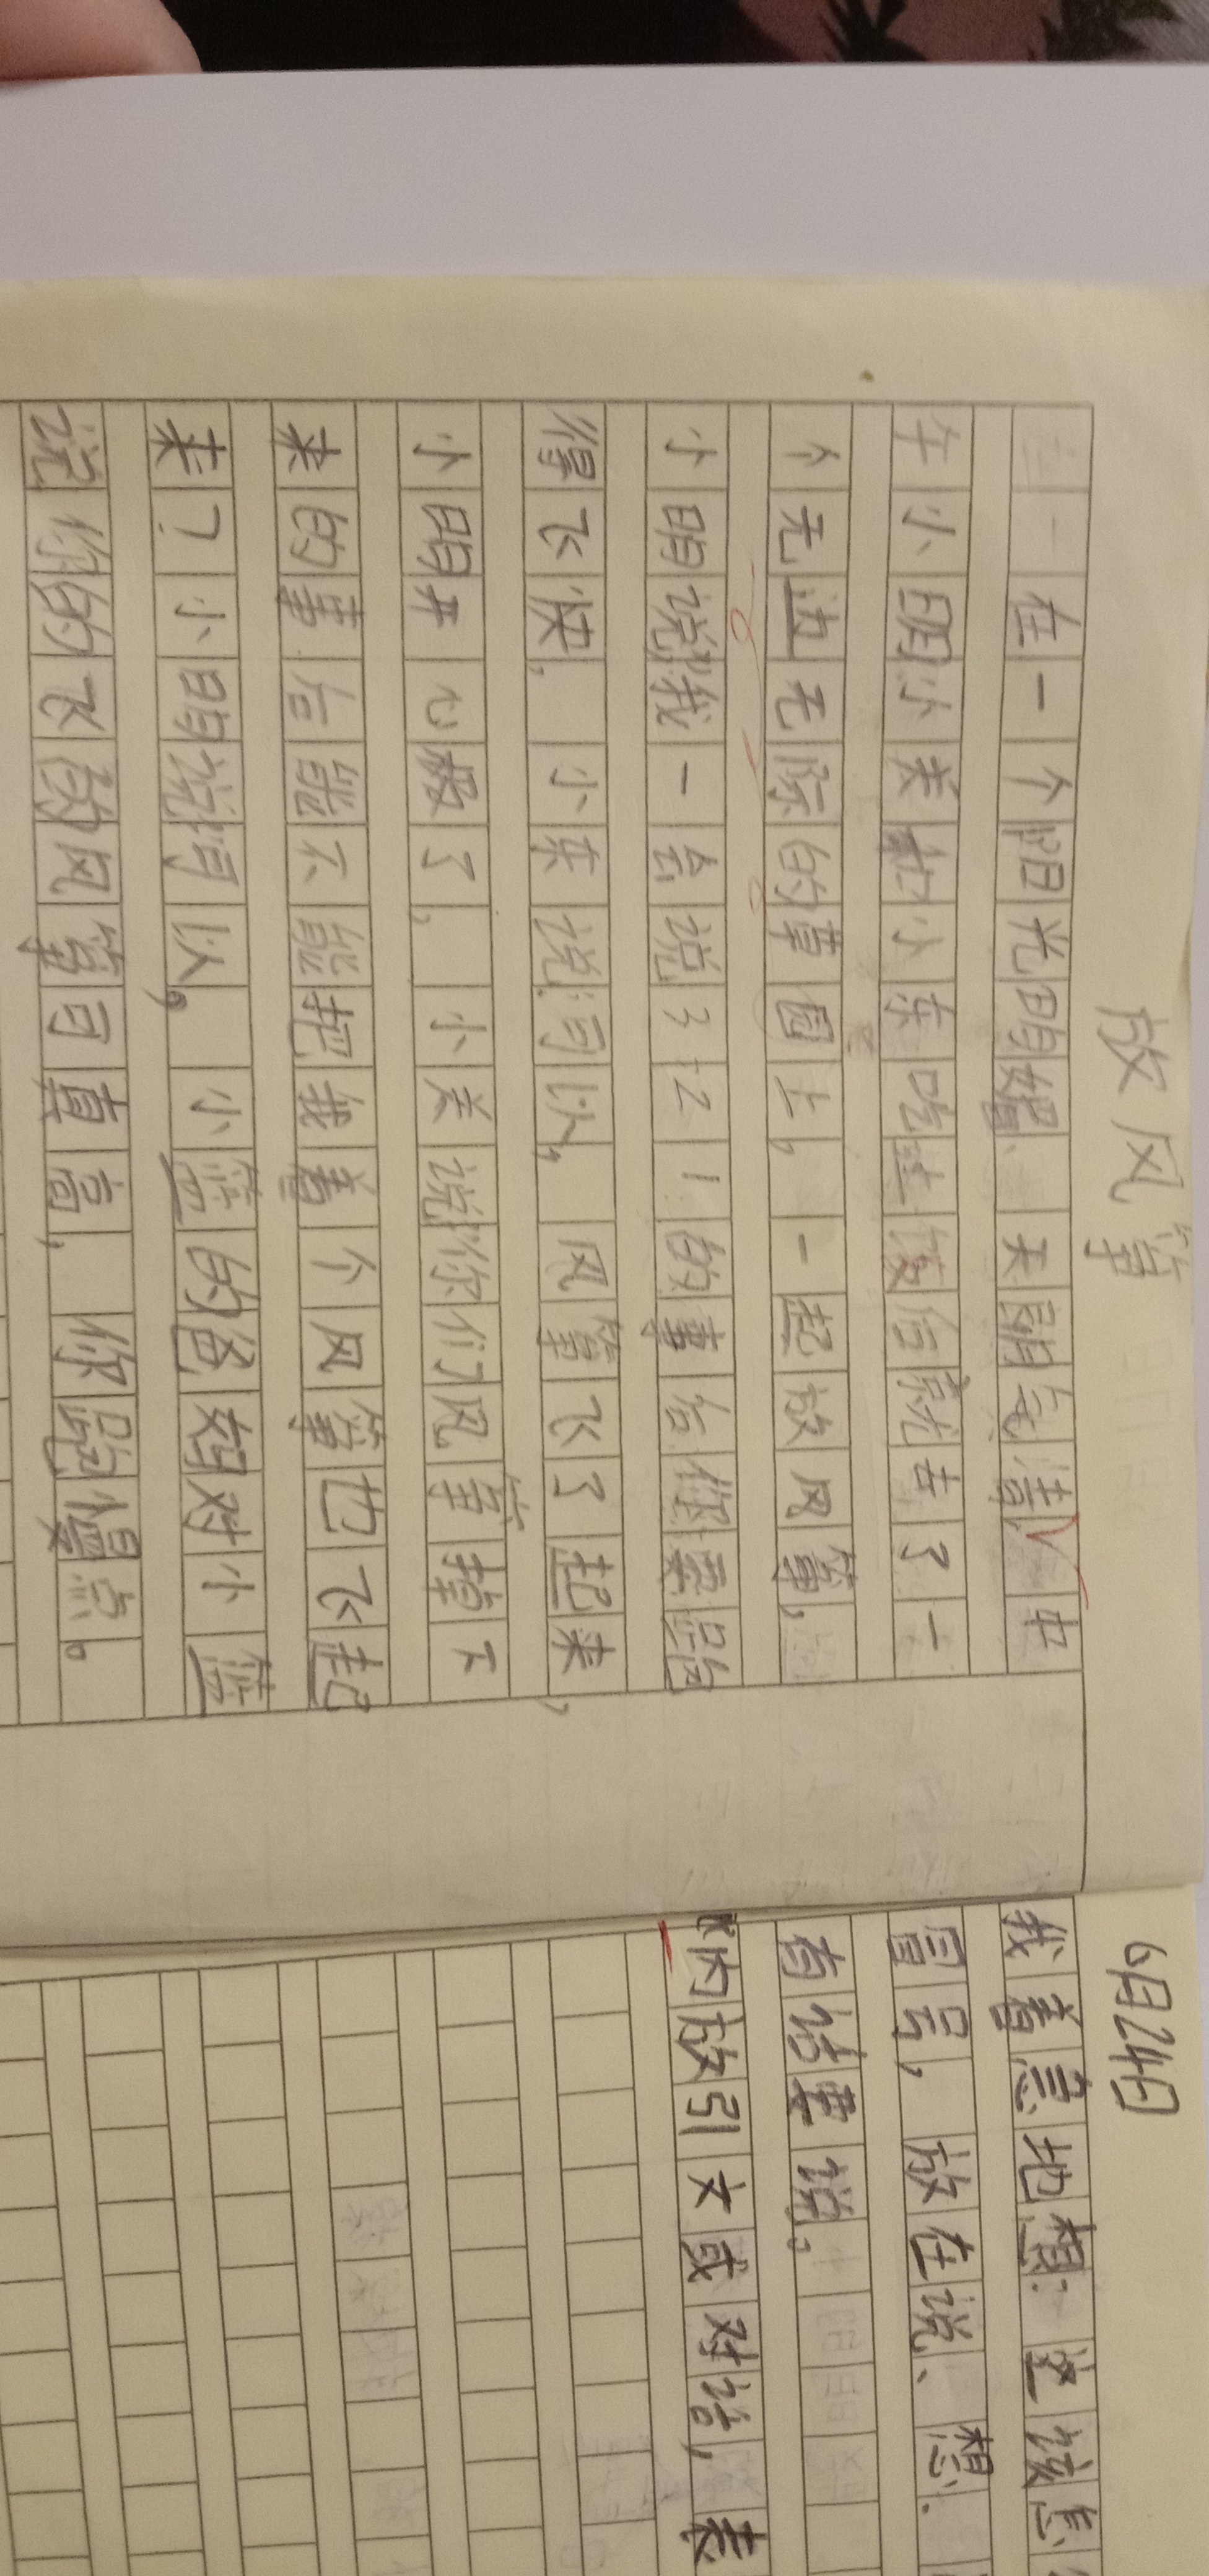 放风筝
在一个阳光明媚、天朗气清、中
午小明小关和小东吃过饭后就去了一
个无边无际的草园上,一起放风筝,
小明说我一会说321的事后你要跑
得飞快, 小东说:可以, 风筝飞了起来,
小明开心极了, 小关说你们风筝掉下
来的事后能不能把我着个风筝也飞起
来?小明说可以, 小蓝的爸妈对小蓝
说你的飞的风筝可真高, 你跑慢点。
6月24日
我着急地想: 这该怎
冒号, 放在说、想.
有话要说。
内放引文或对话, 表